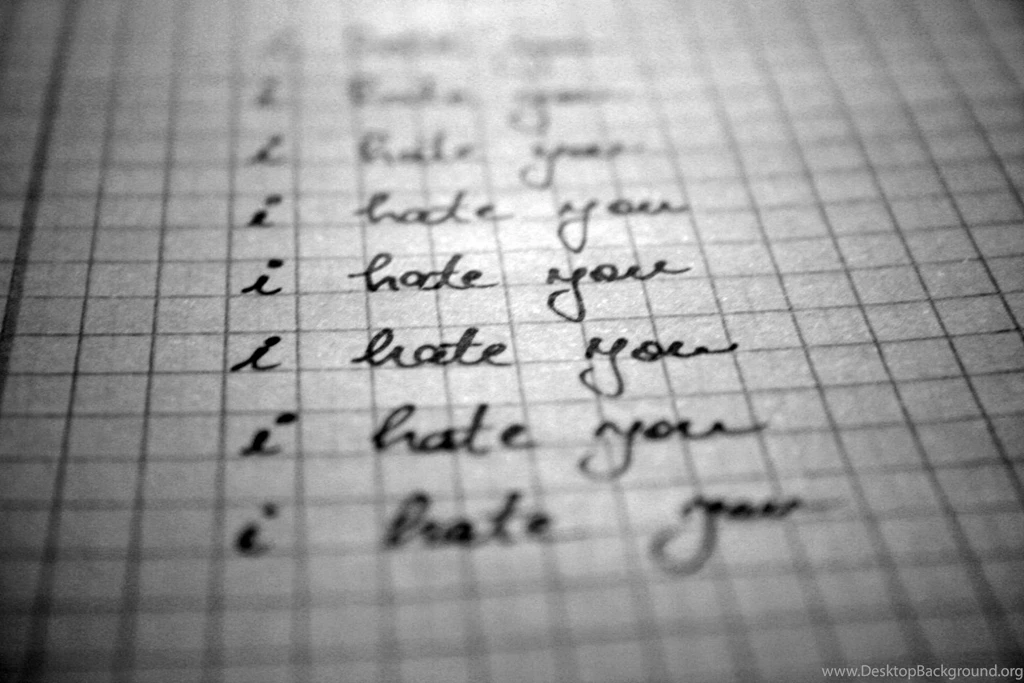 i hate you
i hate you
i hate you
i hate you
i hate you
i hate you
i hate you
i hate you
www.DesktopBackground.org